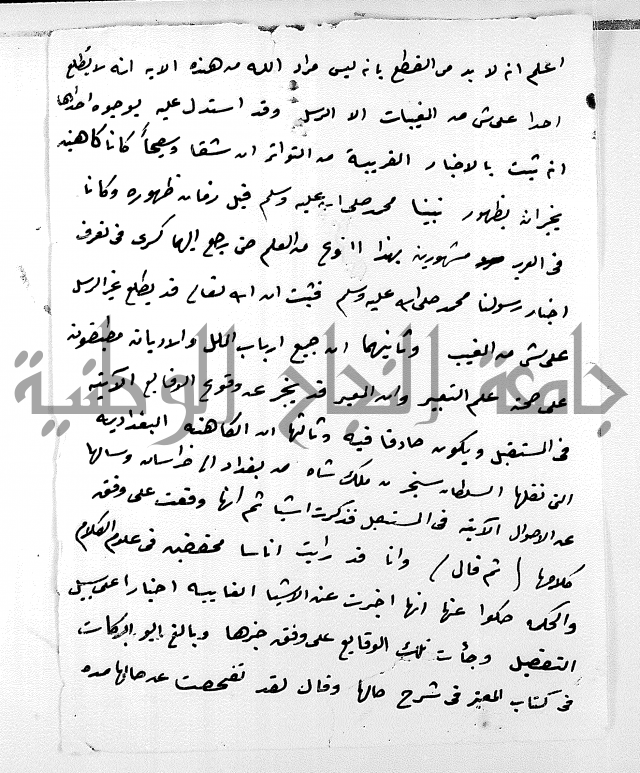 اعلم انه لا بد من القطع بانه ليس مراد الله من هذه الايه انه لا يطلع
احدا على شى من المغيبات الا الرسل وقد استدل عليه بوجوه احداها
انه ثبت بالاخبار القريبة من التواتر ان شقا وسطيحاً كانا كاهنين
يخبران بظهور نبينا محمد صلى الله عليه وسلم قبل زمان ظهوره وكانا
فى العرب مشهورين بهذا النوع من العلم حتى رجع اليهما كسرى فى تعرف
اخبار رسولنا محمد صلى الله عليه وسلم فثبت ان الله تعالى قد يطلع غير الرسل
على شى من الغيب وثانيهما ان جميع ارباب الملل والاديان مطبقون
على صحة علم التعبير وان المعبر قد يخبر عن وقوع الوقايع الآتيه
فى المستقبل ويكون صادقا فيه وثالثها ان الكاهنه البغداديه
التى نقلها السلطان سنجر بن ملك شاه من بغداد الى خراسان وسالها
عن الاحوال الآتيه فى المستقبل فذكرت اشيا ثم انها وقعت على وفق
كلامها (ثم قال) وانا قد رايت اناسا محققين فى علوم الكلام
والحكمه حكوا عنها انها اخبرت عن الاشيا الغايبه اخبارا على سبيل
التفصيل وجأت تلك الوقايع على وفق خبرها وبالغ ابو البركات
فى كتاب المعتبر فى شرح حالها وقال لقد تفحصت عن حالها مده
جامعة النجاح الوطنية